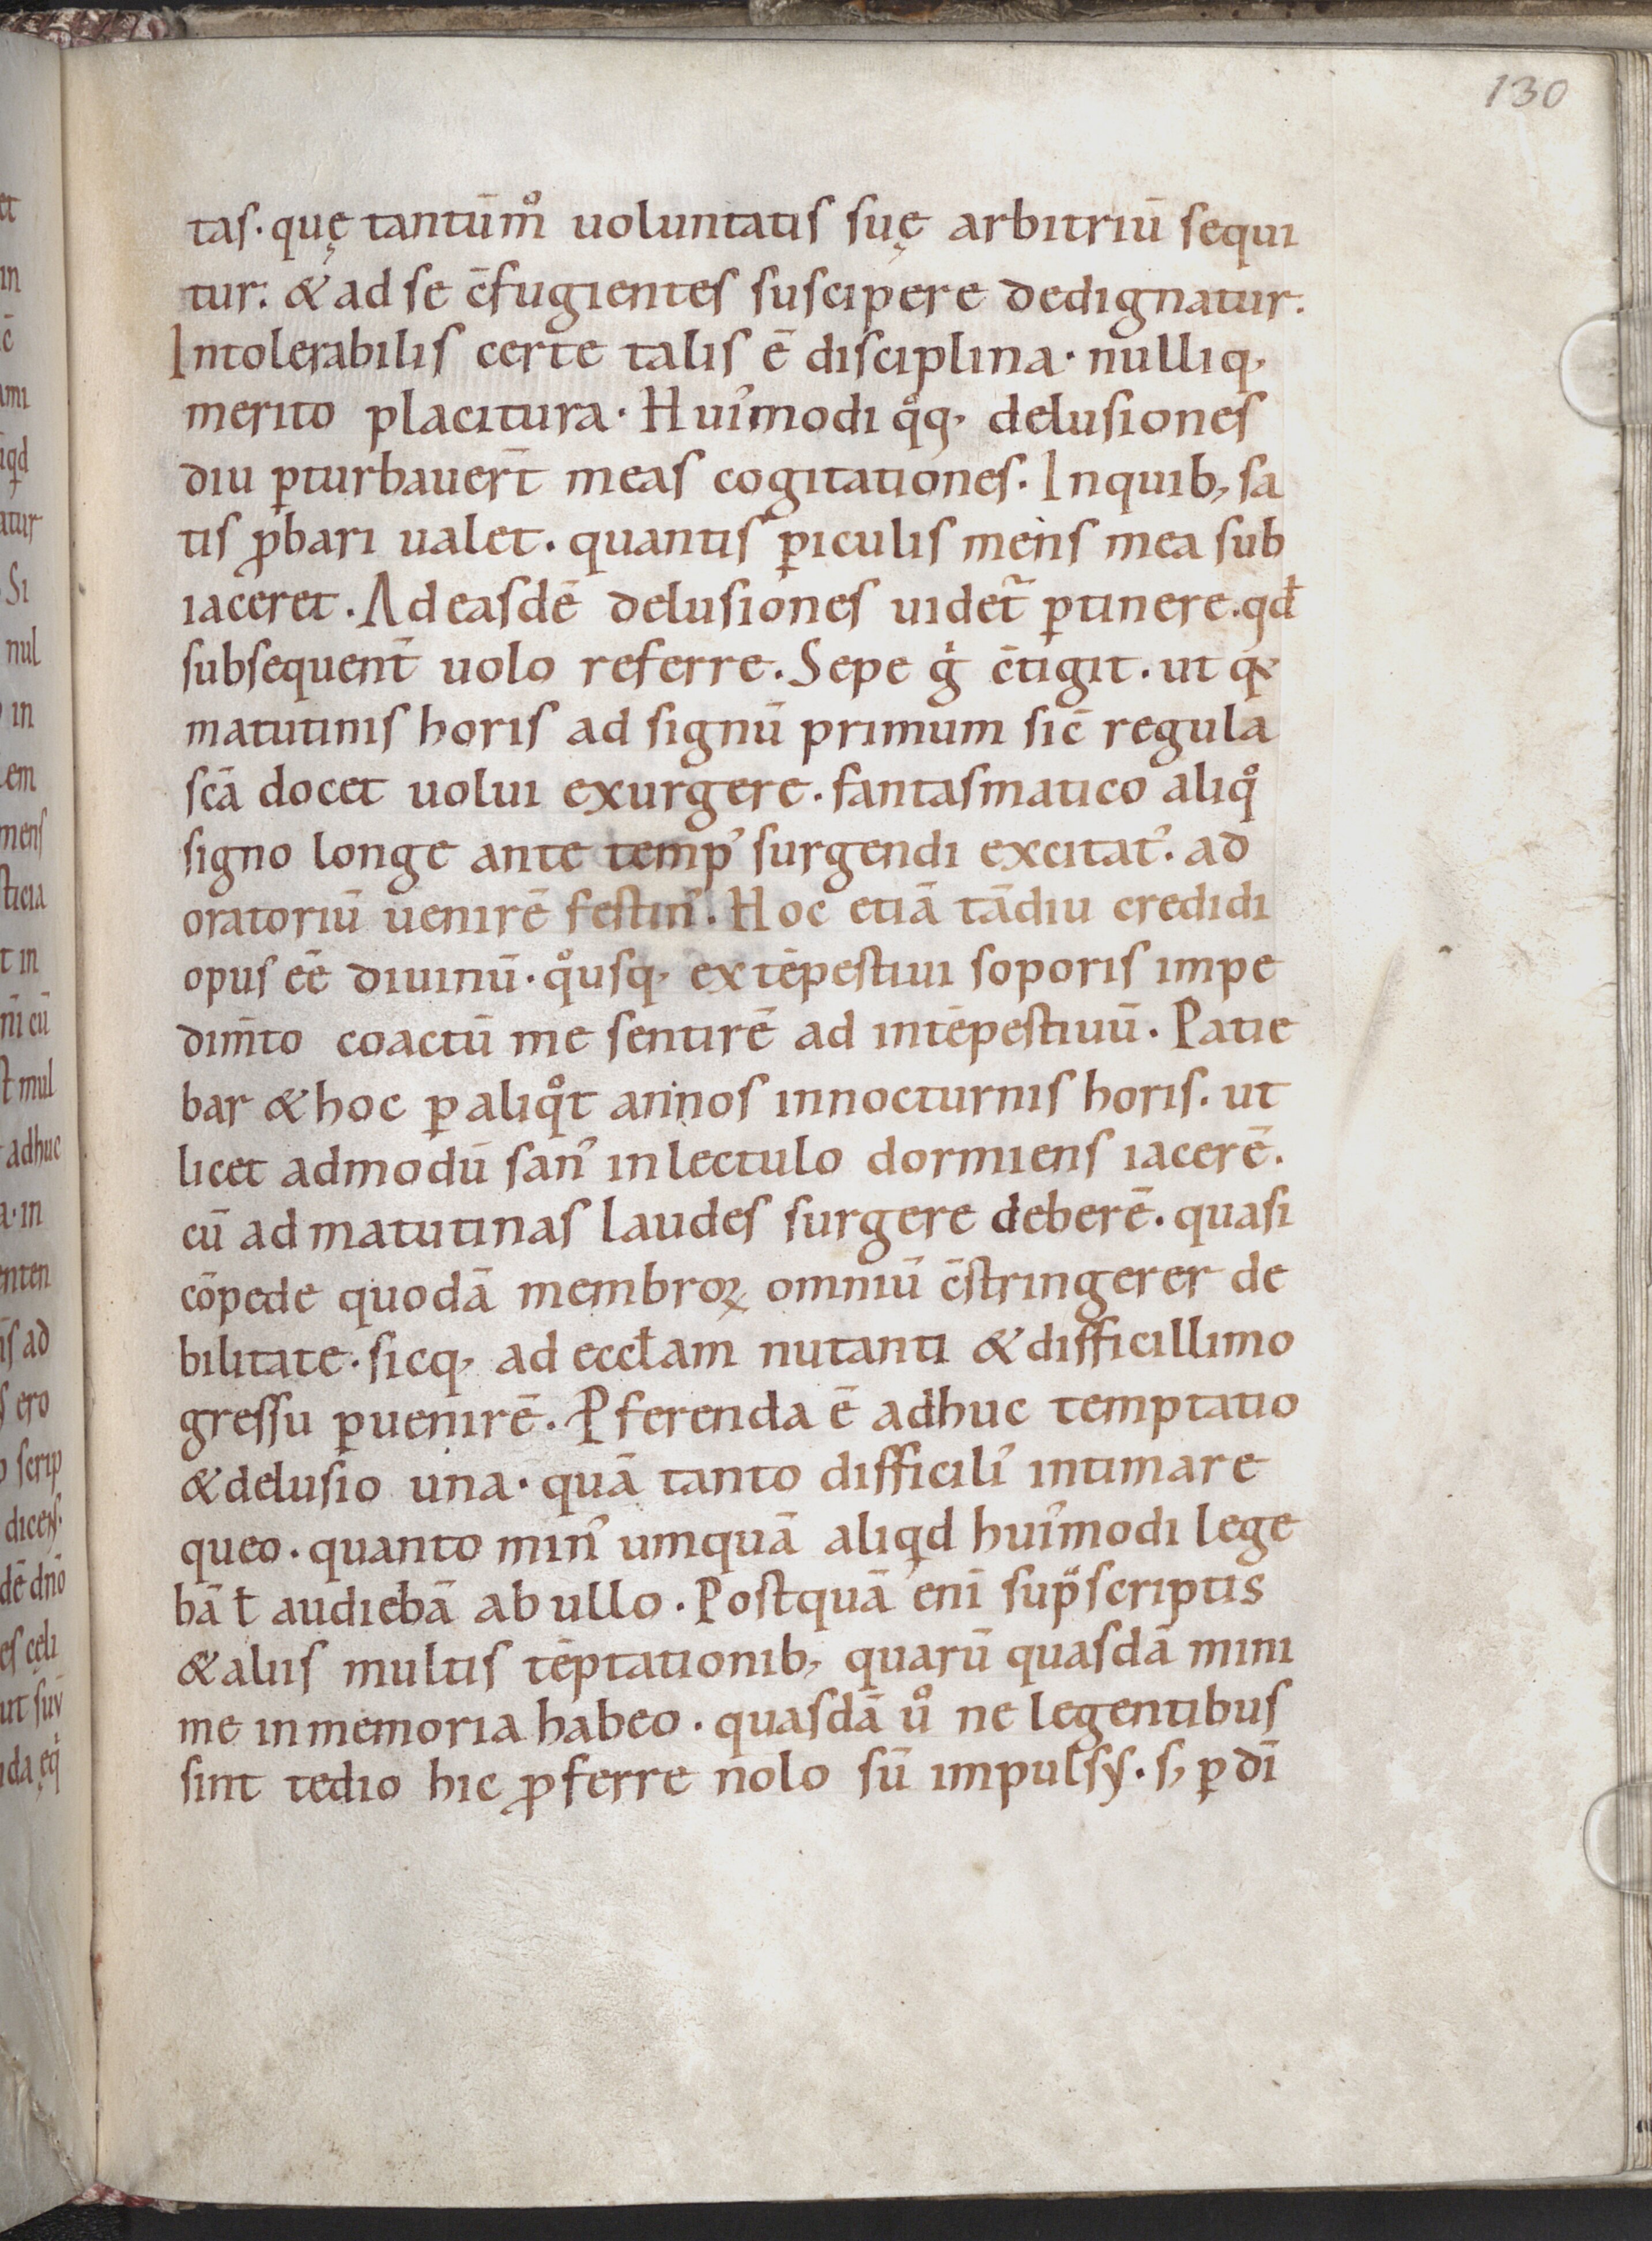 130
tas. quę tantūmͦ uoluntatis suę arbitriū sequi
tur: & ad se c̄fugientes suscipere dedignatur.
Intolerabilis certe talis ē disciplina. nulliq,
merito placitura. Huiꝰmodi qͦq, delusiones
diu ꝑturbauer̄t meas cogitationes. Inquib, sa
tis ꝓbari ualet. quantis ꝑiculis mens mea sub
iaceret. Ad easdē delusiones uidet̄ ꝑtinere. qđ
subsequent̄ uolo referre. Sepe gͥ c̄tigit. ut qͣ
matutinis horis ad signū primum sic̄ regula
sc̄a docet uolui exurgere. fantasmatico aliqͦ
signo longe ante tempꝰ surgendi excitatꝰ. ad
oratoriū uenirē festinꝰ. Hoc etiā tādiu credidi
opus eē diuinū. qͦusq, ex tēpestiui soporis impe
dim̄to coactū me sentirē ad intēpestiuū. Patie
bar & hoc ꝑ aliqͦt annos innocturnis horis. ut
licet admodū sanꝰ in lectulo dormiens iacerē.
cū ad matutinas laudes surgere deberē. quasi
cōpede quodā membroꝝ omniū c̄stringerer de
bilitate. sicq, ad eccłam nutanti & difficillimo
gressu ꝑuenirē. Pferenda ē adhuc temptatio
& delusio una. quā tanto difficiliꝰ intimare
queo. quanto minꝰ umquā aliqͥd huiꝰmodi lege
bā ł audiebā ab ullo. Postquā eni̅ sup̄scriptis
& aliis multis tēptationib, quarū quasdā mini
me in memoria habeo. quasdā uͦ ne legentibus
sint tedio hic ꝓferre nolo sū impulsꝰ. s, ꝑ di̅